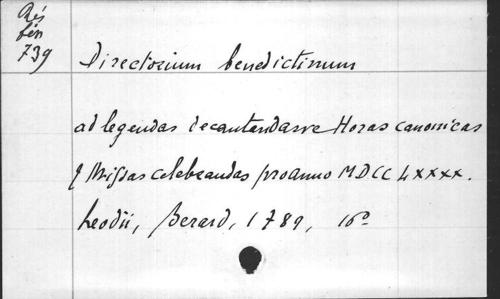 Rés
bén
739
Directorium benedictinum
ad legendas decantandasve Horas canonicas
& Missas celebrandas pro anno MDCCLXXXX.
Leodii, Berard, 1789, 16°